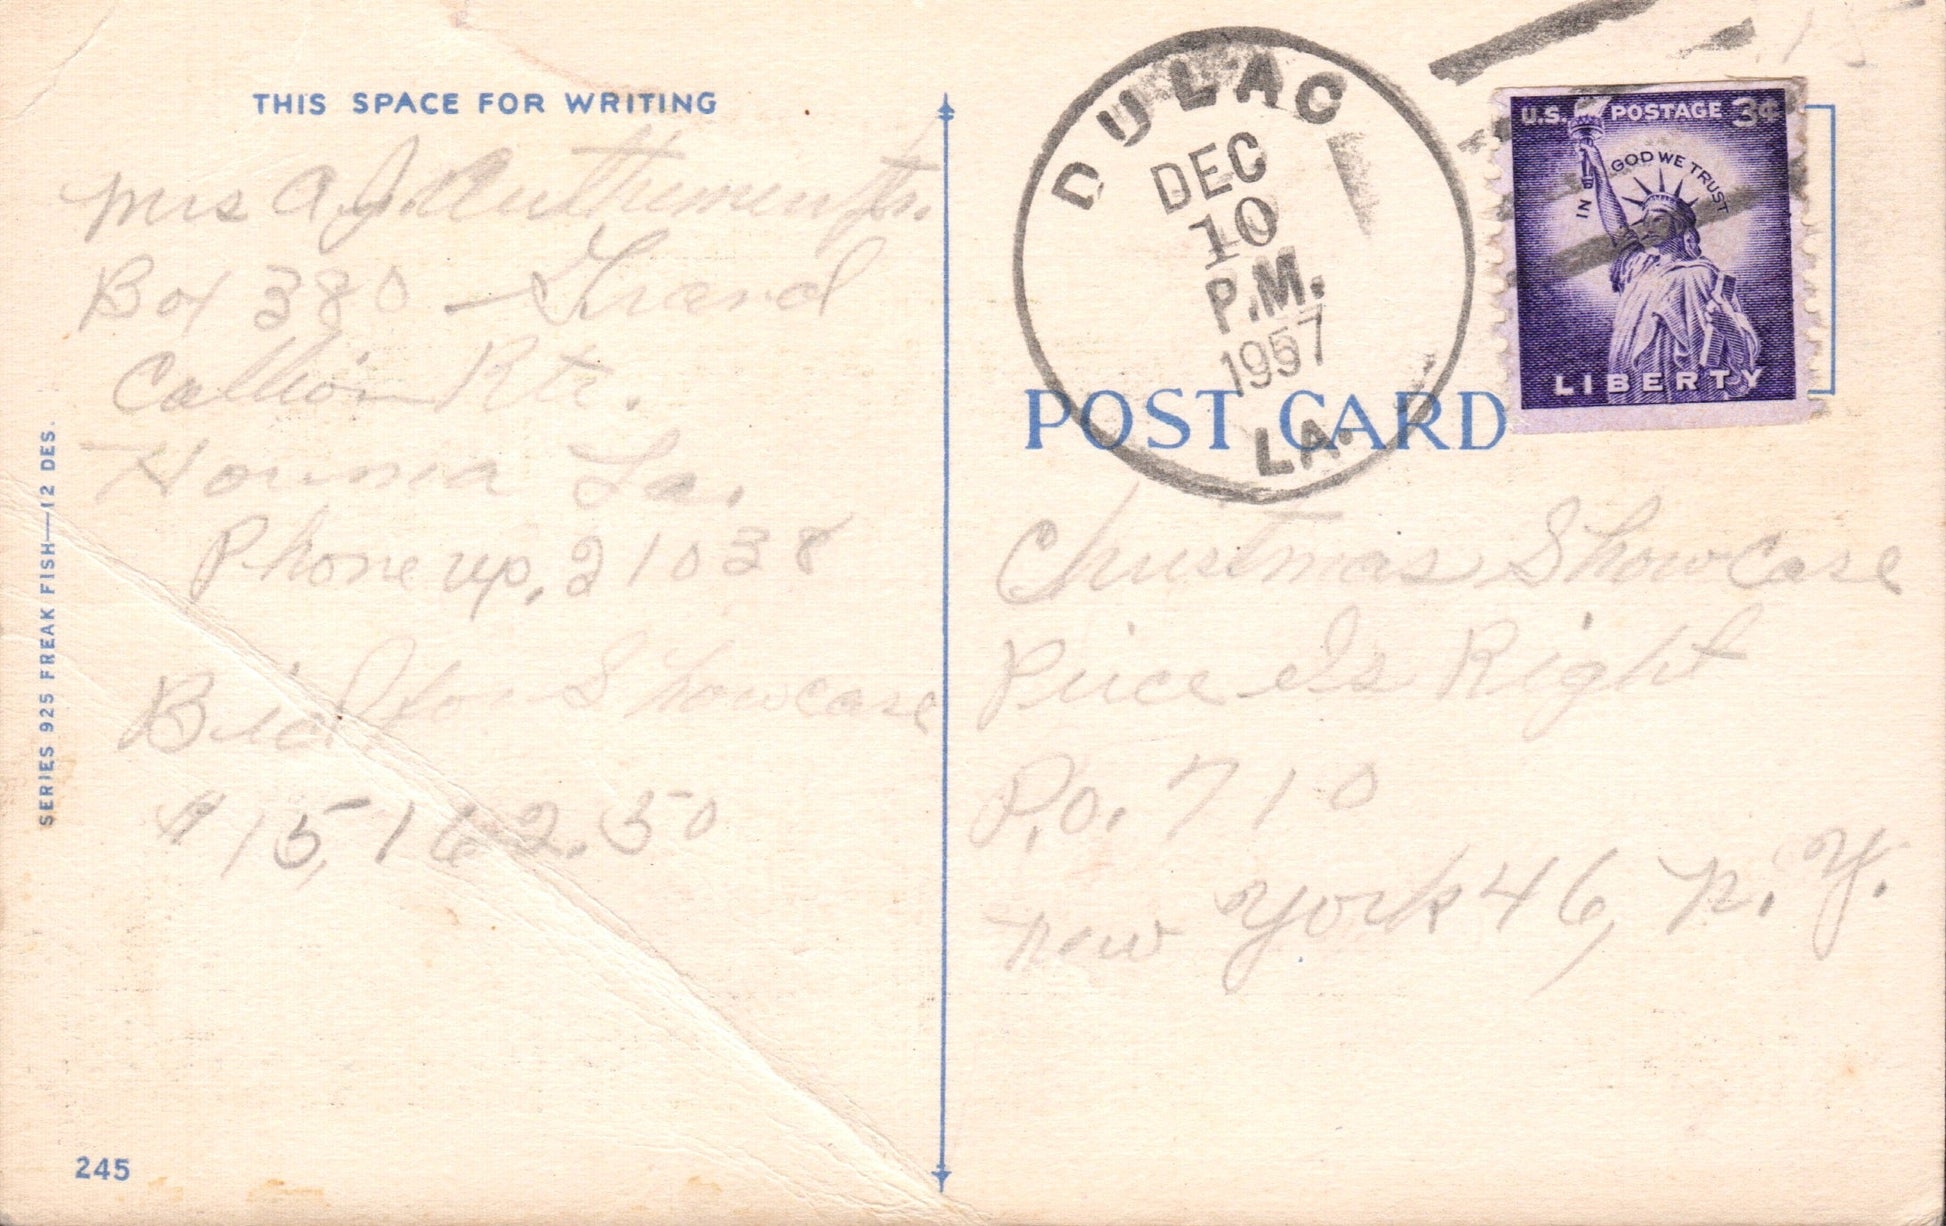 THIS SPACE FOR WRITING
Mrs A. J. Jr.
Box 380 - Grand
Callion Rte.
Houma La.
Phone up. 21038
Bid for Showcase
$15,162.50
SERIES 925 FREAK FISH—12 DES.
245
DULAC
DEC
10
P.M.
1957
LA.
U.S. POSTAGE 3¢
IN GOD WE TRUST
LIBERTY
POST CARD
Christmas Showcase
Price Is Right
P.O. 710
New York 46, N. Y.